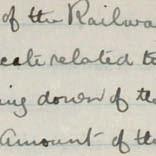 of the Railwa
cate related to
ing down of the
Amount of th